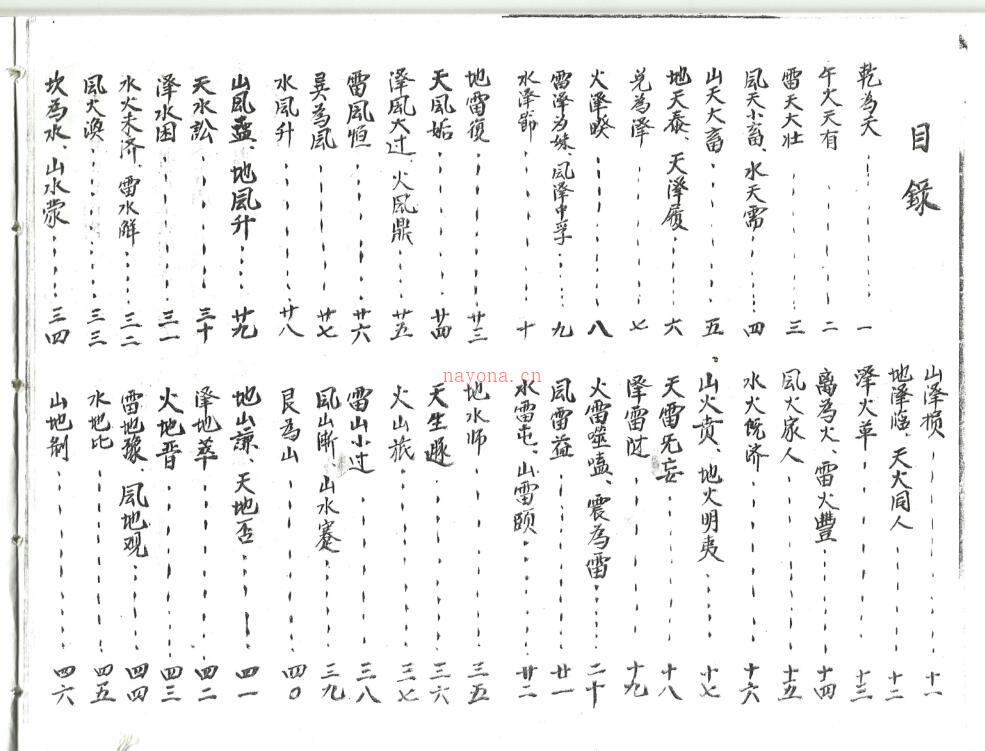 目录
乾為天 一
午火天有 二
雷天大壮 三
風天小畜、水天需 四
山天大畜 五
地天泰、天泽履 六
兑為泽 七
火泽暌 八
雷泽为妹、風泽中孚 九
水泽節 十
山泽损 十一
地泽临、天火同人 十二
泽火革 十三
离為火、雷火豐 十四
風火家人 十五
水火既济 十六
山火贲、地火明夷 十七
天雷无妄 十八
泽雷随 十九
火雷噬嗑、震為雷 二十
風雷益 廿一
水雷屯、山雷颐 廿二
地雷復 廿三
天風姤 廿四
泽風大过、火風鼎 廿五
雷風恒 廿六
巽為風 廿七
水風升 廿八
山風蛊、地風升 廿九
天水訟 三十
泽水困 三一
水火未济、雷水解 三二
風火涣 三三
坎為水、山水蒙 三四
地水师 三五
天生遯 三六
火山旅 三七
雷山小过 三八
風山渐、山水蹇 三九
艮為山 四〇
地山谦、天地否 四一
泽地萃 四二
火地晋 四三
雷地豫、風地观 四四
水地比 四五
山地剝 四六
nayona.cn